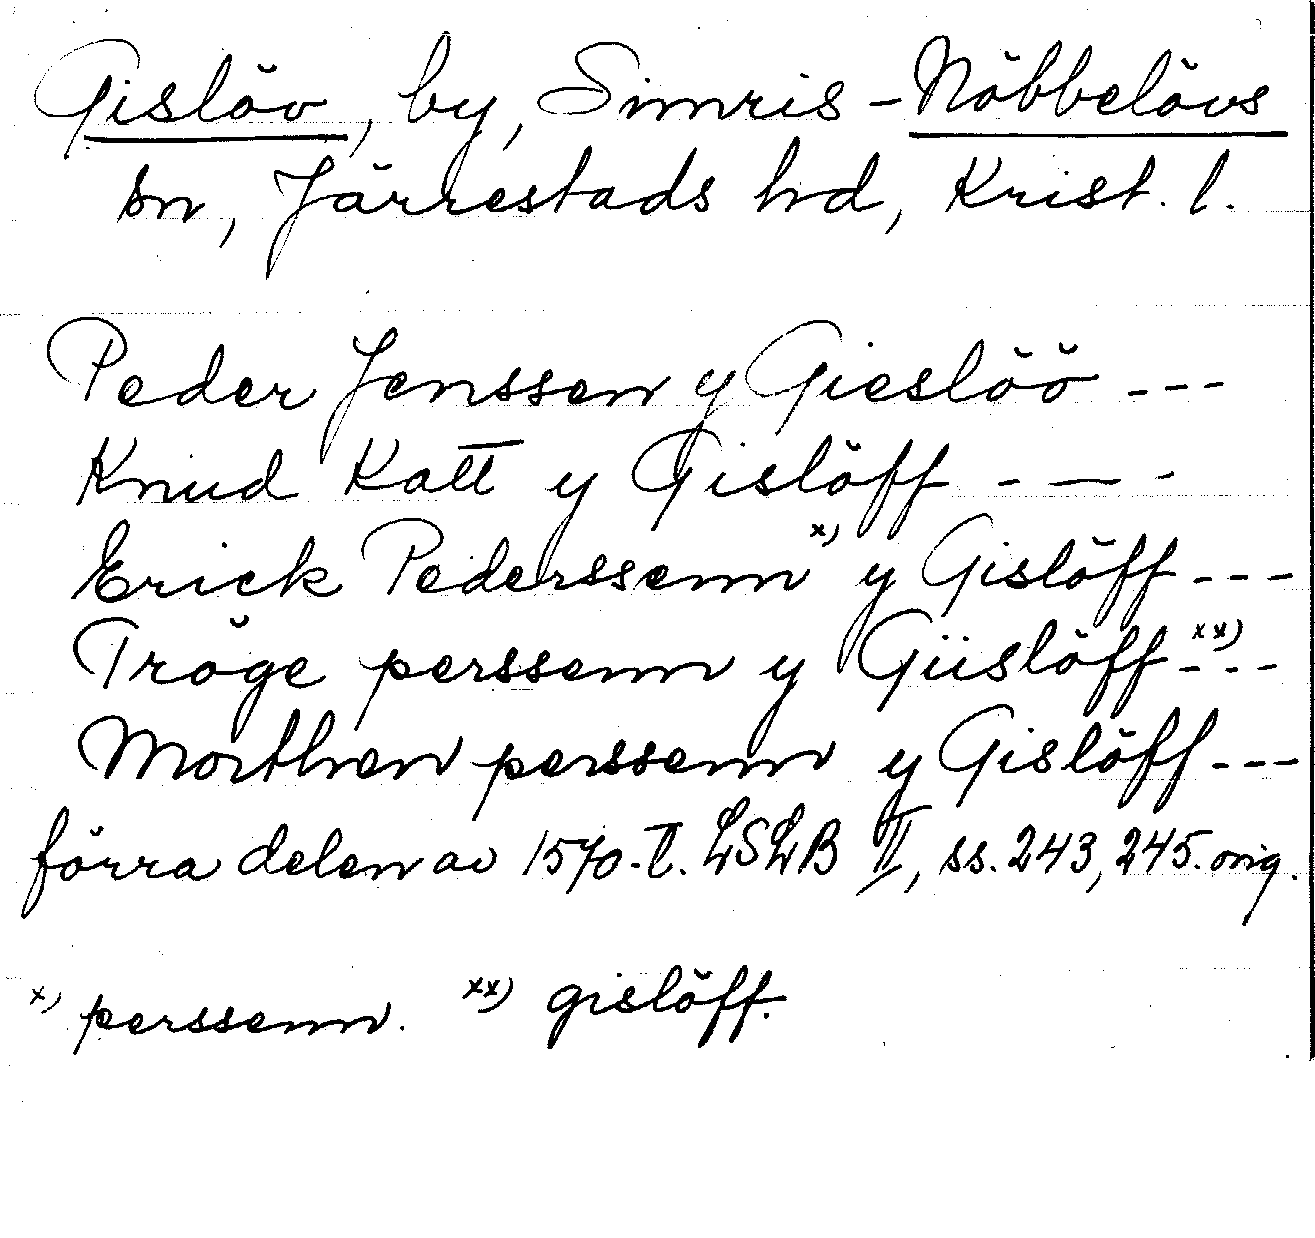 Gislöv, by, Simris-Nöbbelövs
sn, Järrestads hd, Krist. l.
Peder Jenssen y Gieslöö ---
Knud Katt y Gislöff - — -
Erick Pederssenn x) y Gislöff ---
Tröge perssenn y Giislöff xx) ---
Morthen perssenn y Gislöff ---
förra delen av 1570-t. LSLB II, ss. 243, 245. orig.
x) perssenn. xx) gislöff.